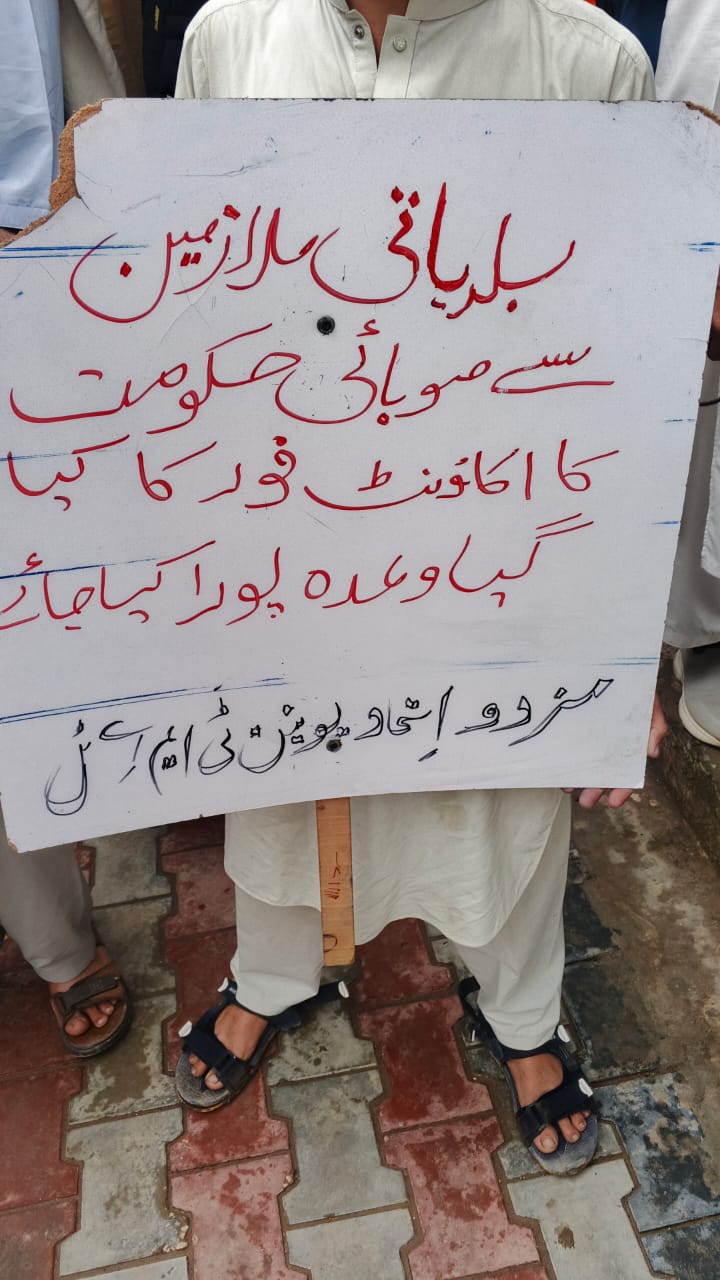 بلدیاتی ملازمین
سے صوبائی حکومت
کا اکاؤنٹ فور کا کیا
گیا وعدہ پورا کیا جائے
مزدور اتحاد یونین ٹی ایم اے ٹل